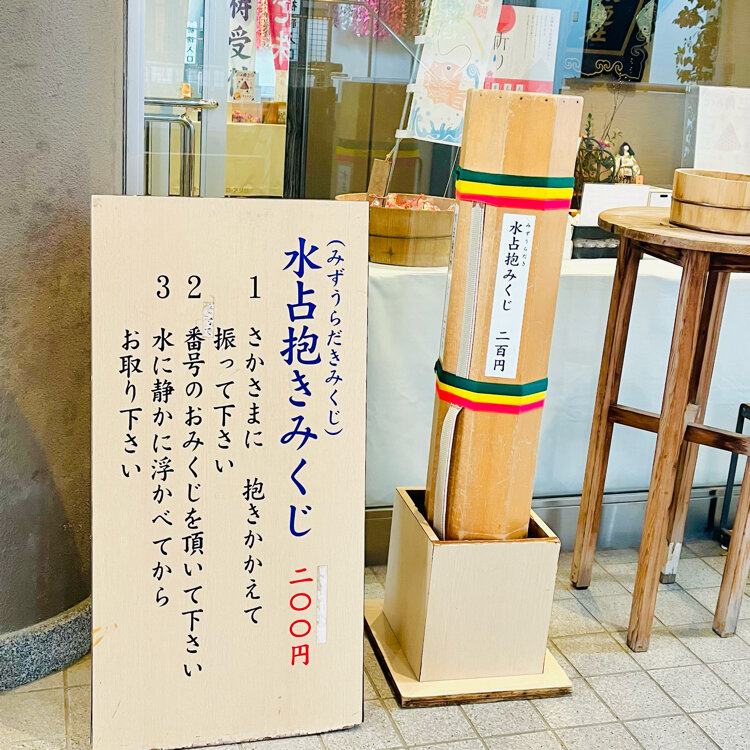 (みずうらだきみくじ)
水占抱きみくじ 二〇〇円
1 さかさまに 抱きかかえて
振って下さい
2 番号のおみくじを頂いて下さい
3 水に静かに浮かべてから
お取り下さい
みずうらだき
水占抱みくじ 二百円
祈り